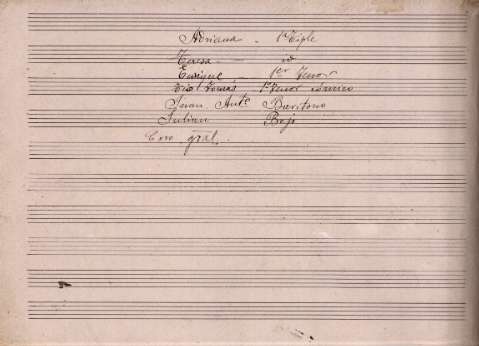 Adriana - 1ª Tiple
Teresa - id
Enrique - 1er Tenor
Tio Tomás - 1r Tenor cómico
Juan Antº Baritono
Julian Bajo
Coro gral.